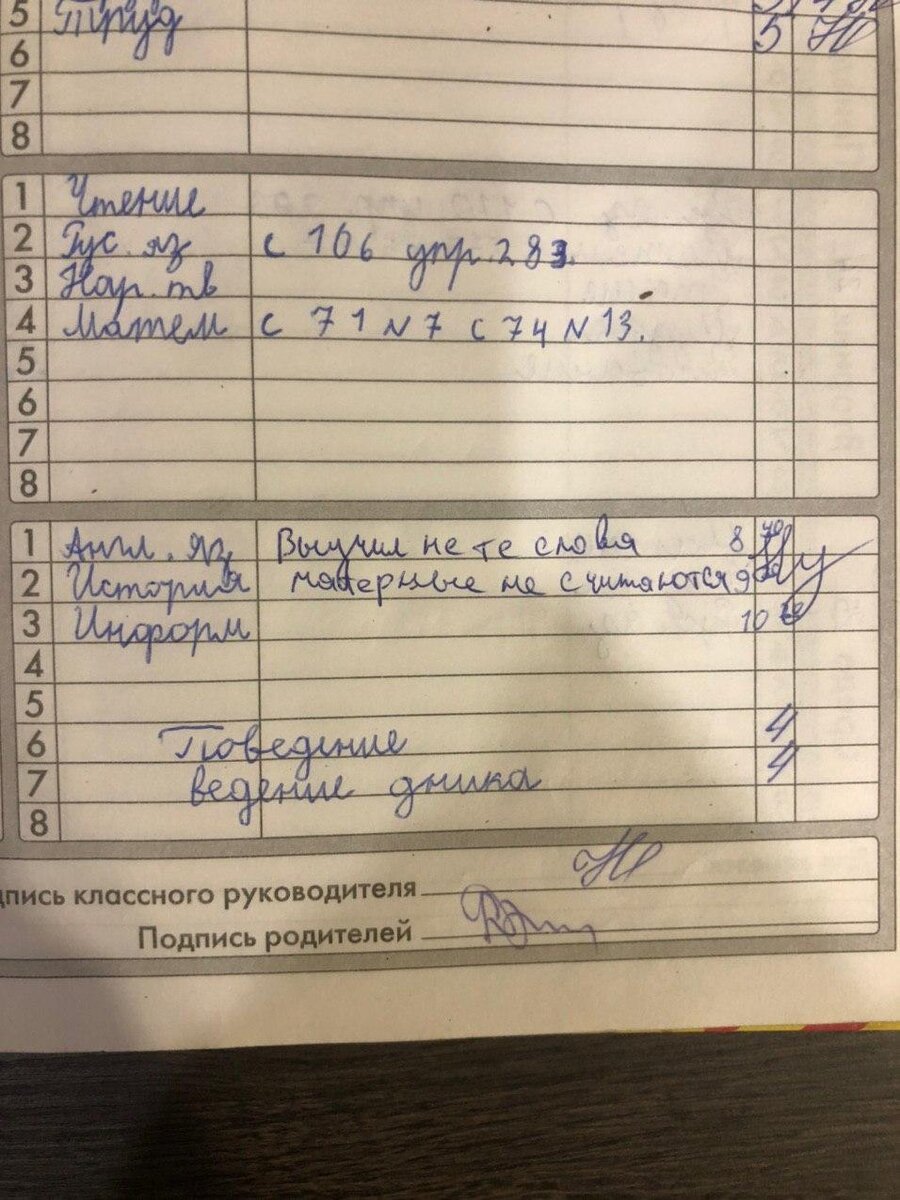 5 Труд
6 5
7
8
1 Чтение
2 Рус. яз с 106 упр. 283.
3 Нар. тв
4 Матем с 71 N 7 с 74 N 13.
5
6
7
8
1 Англ. яз Выучил не те слова 8
2 История матерные не считаются 9
3 Информ 10
4
5
6 Поведение 4
7 ведение дника 4
8
дпись классного руководителя
Подпись родителей